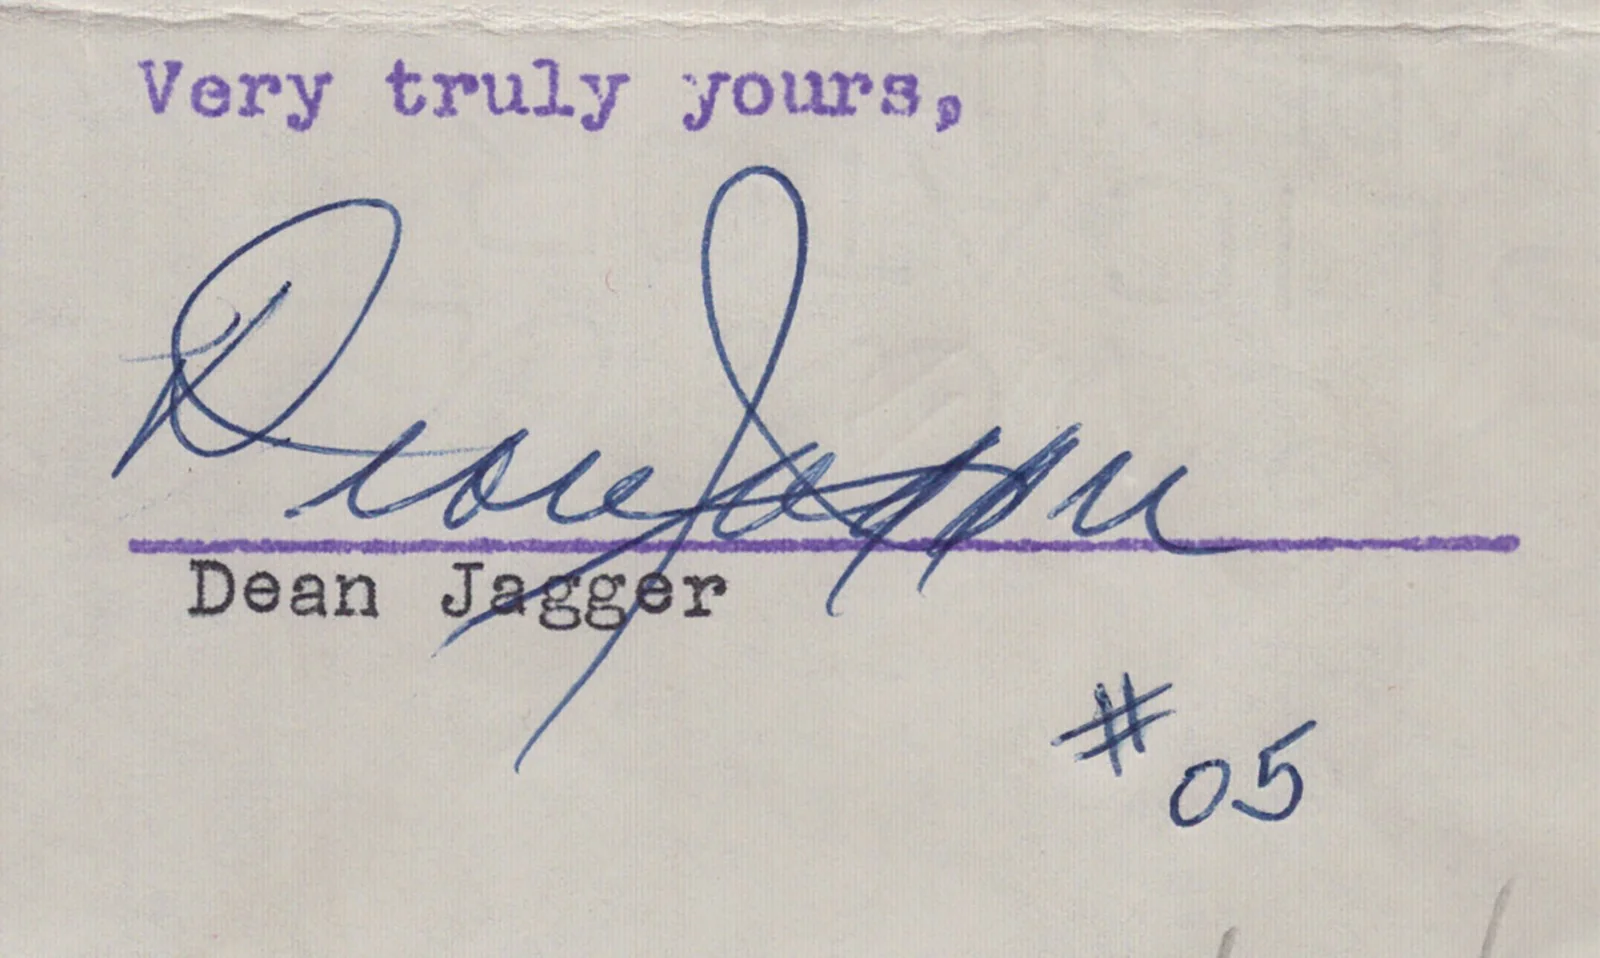 Very truly yours,
Dean Jagger
Dean Jagger
#05